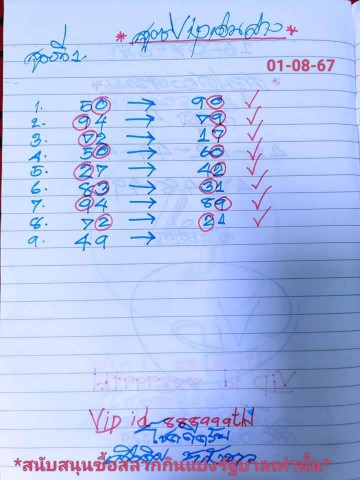 *สูตรVipเซนส่าง*
สูตรที่1
01-08-67
1. 50 → 90 ✓
2. 94 → 79 ✓
3. 72 → 17 ✓
4. 50 → 60 ✓
5. 27 → 42 ✓
6. 83 → 31 ✓
7. 94 → 89 ✓
8. 72 → 21 ✓
9. 49 →
Vip id
*สนับสนุนซื้อสลากกินแบ่งรัฐบาลเท่านั้น*